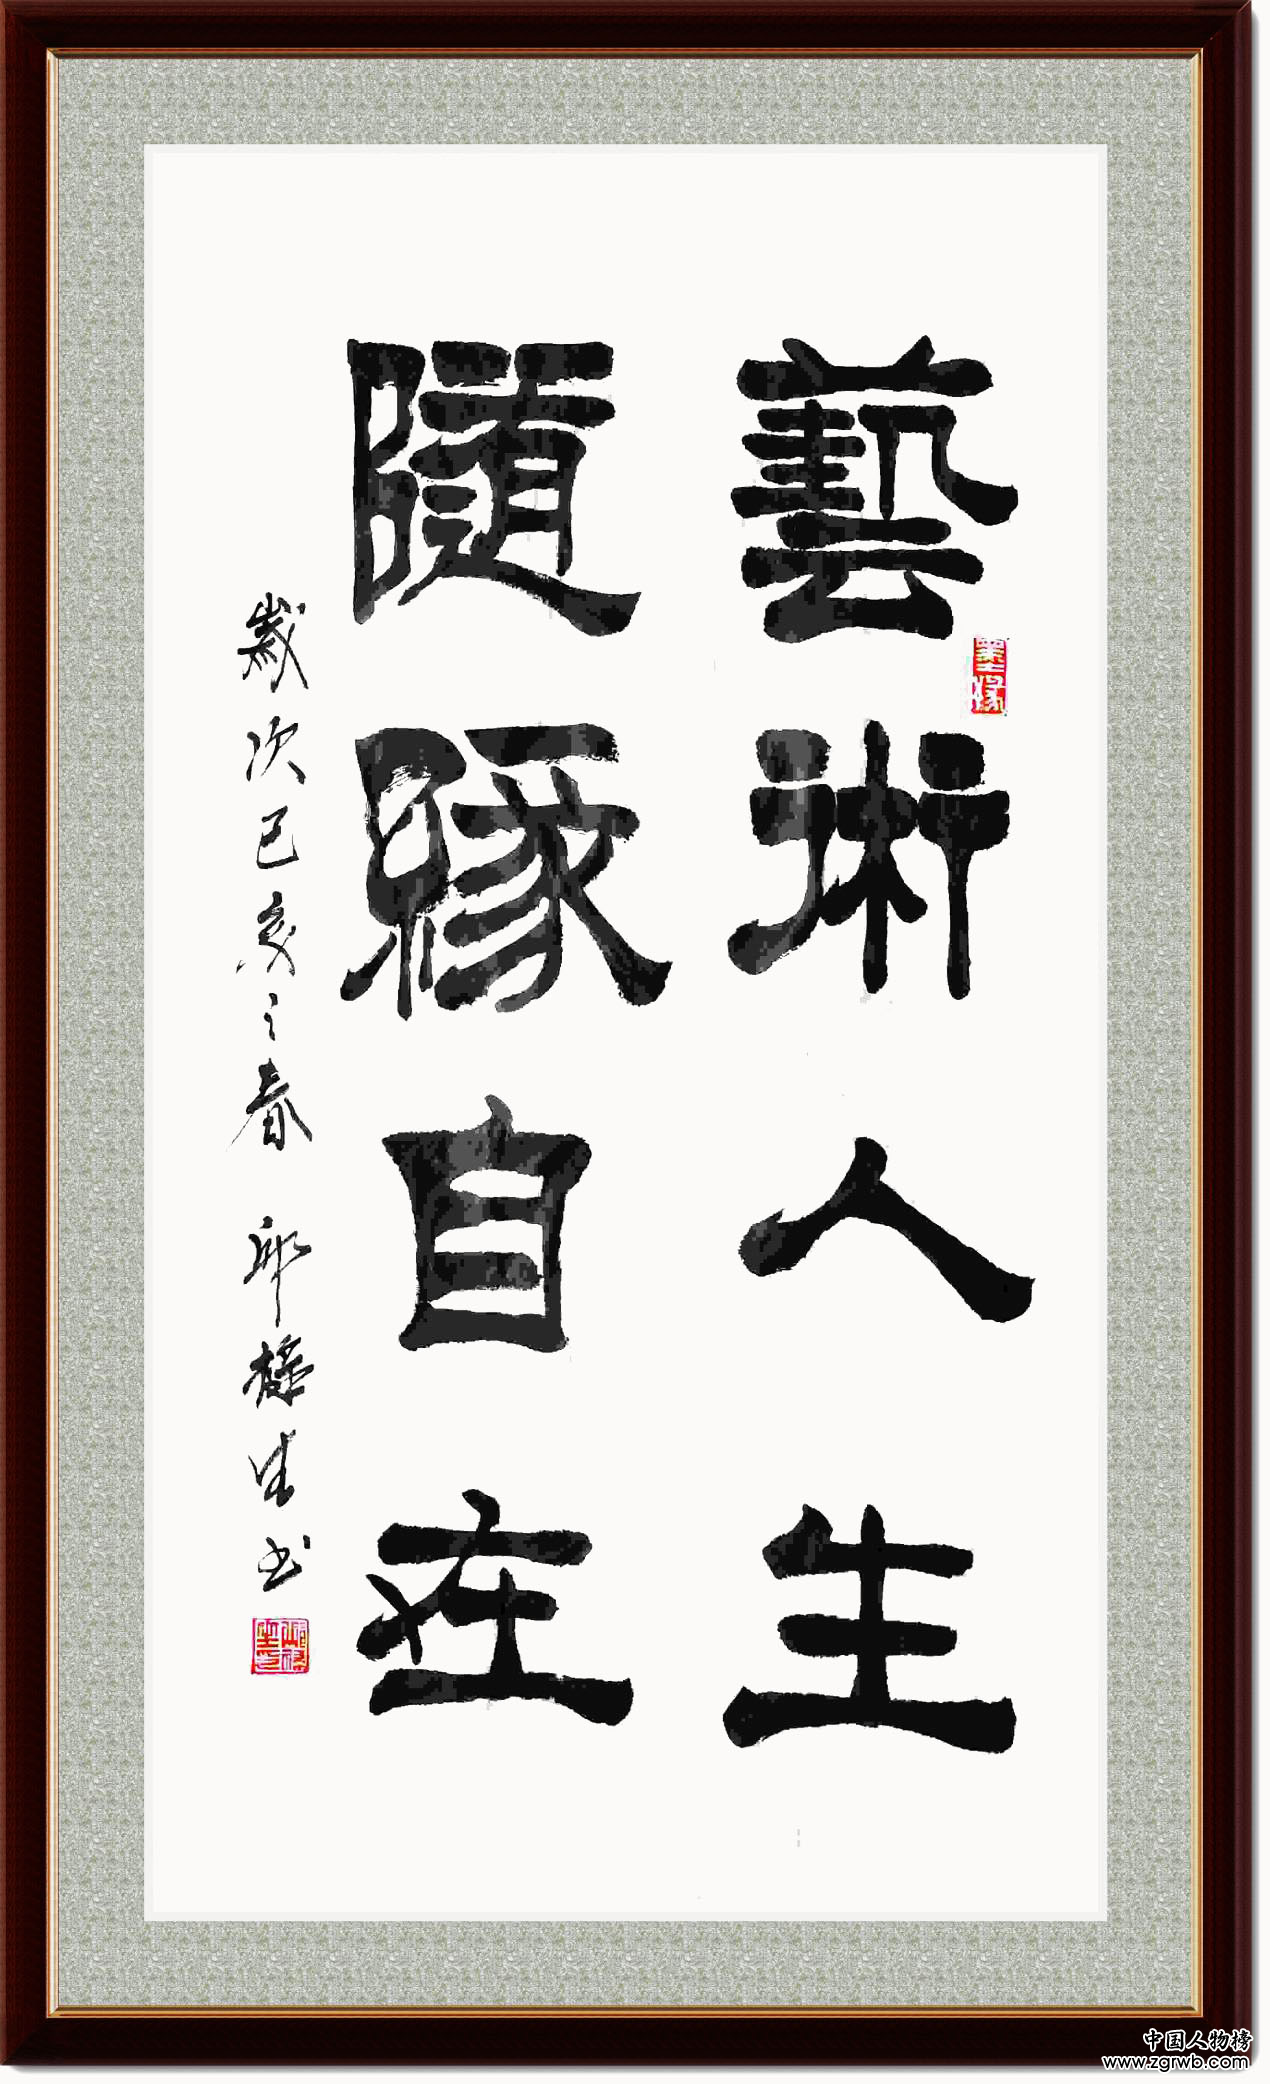 藝術人生
隨緣自在
歲次己亥之春 邱樣生书
墨缘
中国人物榜
www.zgrwb.com